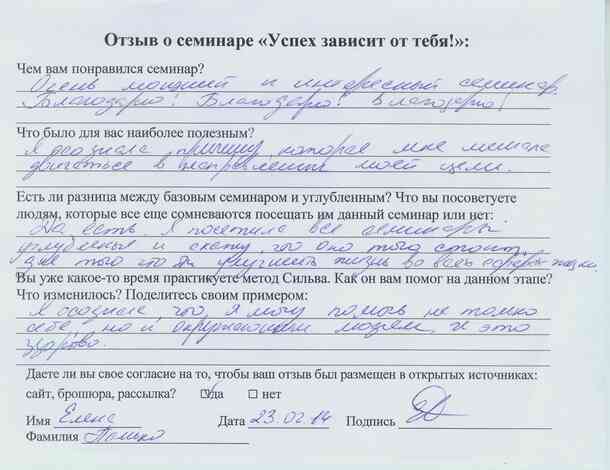 Отзыв о семинаре «Успех зависит от тебя!»:
Чем вам понравился семинар?
Очень мощный и интересный семинар.
Благодарю! Благодарю! Благодарю!
Что было для вас наиболее полезным?
Я осознала причину, которая мне мешала
двигаться в направлении моей цели.
Есть ли разница между базовым семинаром и углубленным? Что вы посоветуете
людям, которые все еще сомневаются посещать им данный семинар или нет:
Да есть. Я посетила все семинары
углубленья и скажу, что оно того стоит,
для того что бы улучшить жизнь во всех сферах жизни.
Вы уже какое-то время практикуете метод Сильва. Как он вам помог на данном этапе?
Что изменилось? Поделитесь своим примером:
Я осознала, что, я могу помочь не только
себе, но и окружающим людям, и это
здорово.
Даете ли вы свое согласие на то, чтобы ваш отзыв был размещен в открытых источниках:
сайт, брошюра, рассылка? да нет
Имя Елена Дата 23.02.14 Подпись
Фамилия